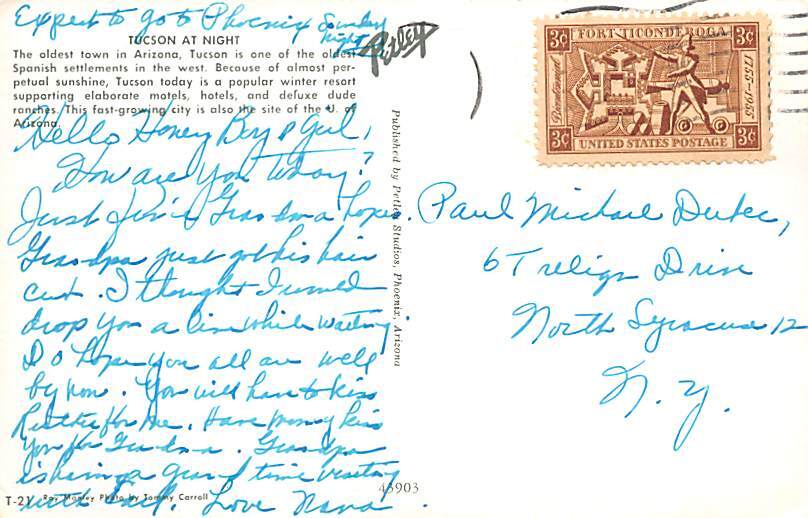 Expect to go to Phoenix Sunday
night
Petley
TUCSON AT NIGHT
The oldest town in Arizona, Tucson is one of the oldest
Spanish settlements in the west. Because of almost per-
petual sunshine, Tucson today is a popular winter resort
supporting elaborate motels, hotels, and deluxe dude
ranches. This fast-growing city is also the site of the U. of
Arizona.
Hello Honey Boy & Girl,
How are you today?
Just fine Grandma hopes.
Grandpa just got his hair
cut. I thought I would
drop you a line while waiting.
I do hope you all are well
by now. You will have to kiss
for me. Have mommy kiss
you for Grandma. Grandpa
is having a grand time visiting
with Carl. Love Nana
T-21 Ray Manley Photo by Tommy Carroll
43903
Published by Petley Studios, Phoenix, Arizona
FORT TICONDEROGA
3¢ 3¢
Bicentennial
1755-1955
3¢ 3¢
UNITED STATES POSTAGE
Paul Michael
6 Drive
North Syracuse 12
N. Y.